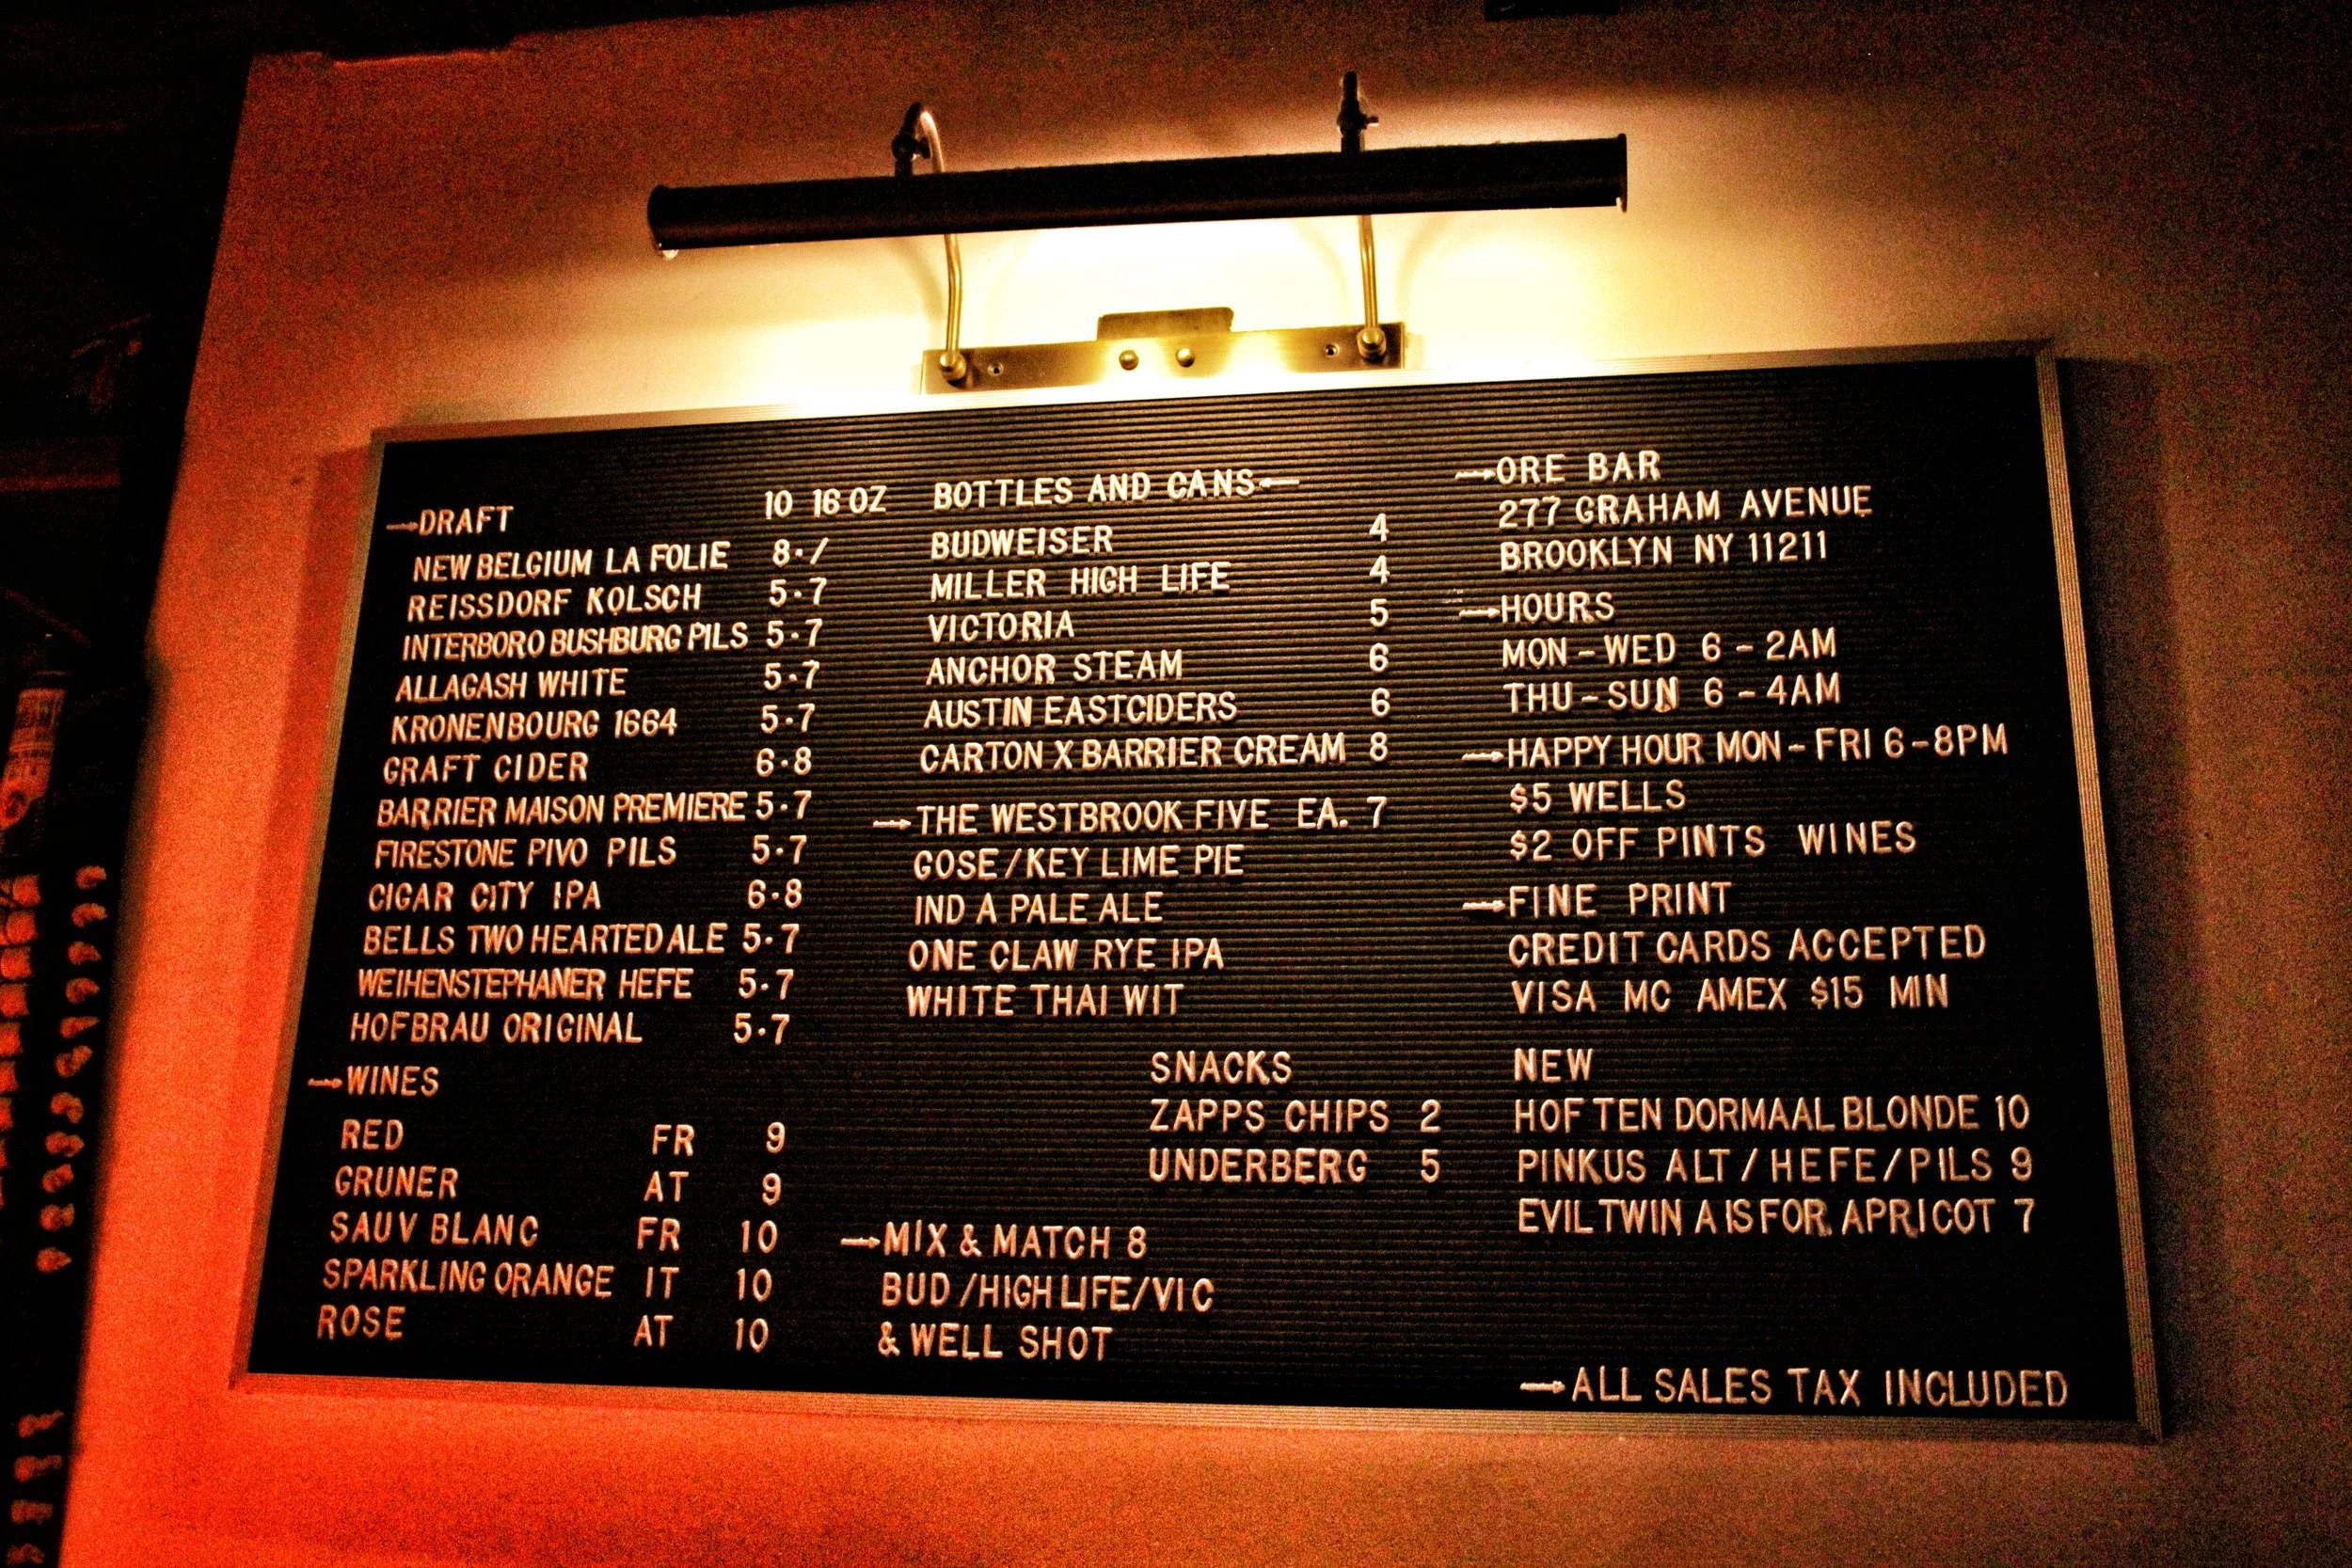 →DRAFT 10 16 OZ
NEW BELGIUM LA FOLIE 8·/
REISSDORF KOLSCH 5·7
INTERBORO BUSHBURG PILS 5·7
ALLAGASH WHITE 5·7
KRONENBOURG 1664 5·7
GRAFT CIDER 6·8
BARRIER MAISON PREMIERE 5·7
FIRESTONE PIVO PILS 5·7
CIGAR CITY IPA 6·8
BELLS TWO HEARTED ALE 5·7
WEIHENSTEPHANER HEFE 5·7
HOFBRAU ORIGINAL 5·7
→WINES
RED FR 9
GRUNER AT 9
SAUV BLANC FR 10
SPARKLING ORANGE IT 10
ROSE AT 10
BOTTLES AND CANS←
BUDWEISER 4
MILLER HIGH LIFE 4
VICTORIA 5
ANCHOR STEAM 6
AUSTIN EASTCIDERS 6
CARTON X BARRIER CREAM 8
→THE WESTBROOK FIVE EA. 7
GOSE/KEY LIME PIE
IND A PALE ALE
ONE CLAW RYE IPA
WHITE THAI WIT
SNACKS
ZAPPS CHIPS 2
UNDERBERG 5
→MIX & MATCH 8
BUD/HIGH LIFE/VIC
& WELL SHOT
→ORE BAR
277 GRAHAM AVENUE
BROOKLYN NY 11211
→HOURS
MON-WED 6-2AM
THU-SUN 6-4AM
→HAPPY HOUR MON-FRI 6-8PM
$5 WELLS
$2 OFF PINTS WINES
→FINE PRINT
CREDIT CARDS ACCEPTED
VISA MC AMEX $15 MIN
NEW
HOF TEN DORMAAL BLONDE 10
PINKUS ALT/HEFE/PILS 9
EVIL TWIN A IS FOR APRICOT 7
→ALL SALES TAX INCLUDED